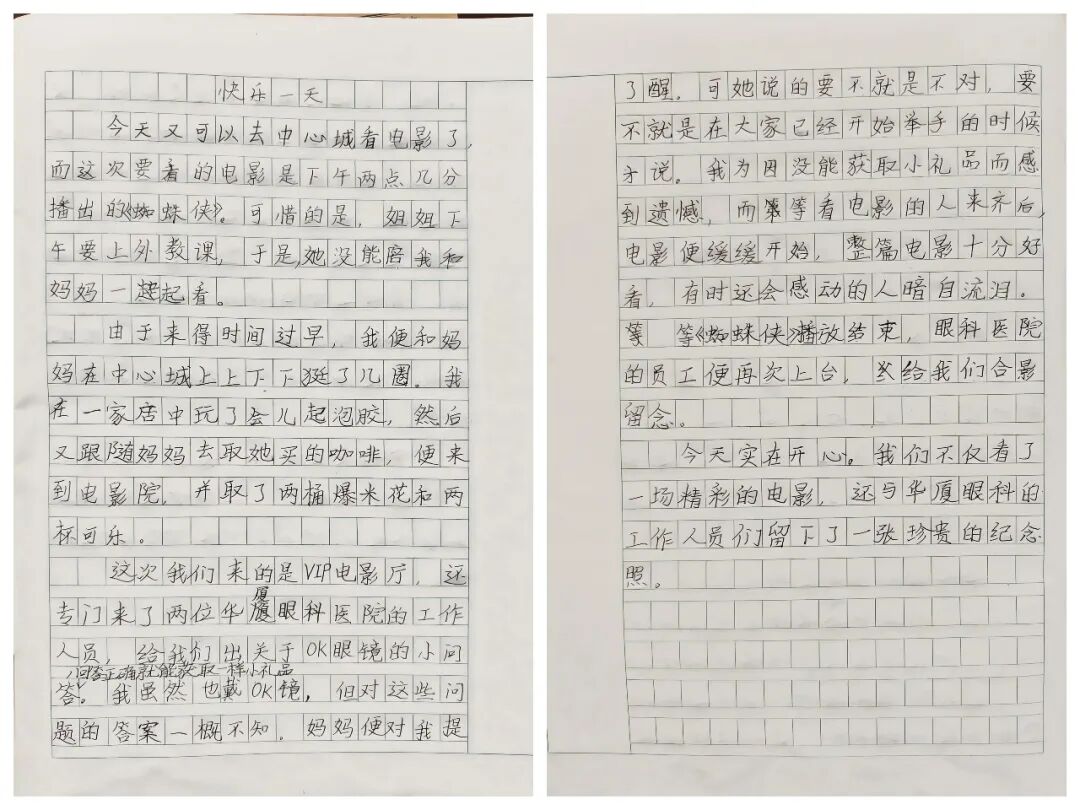 快乐一天
今天又可以去中心城看电影了,
而这次要看的电影是下午两点几分
播出的《蜘蛛侠》。可惜的是,姐姐下
午要上外教课,于是,她没能陪我和
妈妈一起看。
由于来得时间过早,我便和妈
妈在中心城上上下下逛了几圈。我
在一家店中玩了会儿起泡胶,然后
又跟随妈妈去取她买的咖啡,便来
到电影院,并取了两桶爆米花和两
杯可乐。
这次我们来的是VIP电影厅,还
厦
专门来了两位华厦眼科医院的工作
人员,给我们出关于OK眼镜的小问
,回答正确就能获取一样小礼品
答。我虽然也戴OK镜,但对这些问
题的答案一概不知。妈妈便对我提
了醒,可她说的要不就是不对,要
不就是在大家已经开始举手的时候
才说。我为因没能获取小礼品而感
到遗憾,而等看电影的人来齐后,
电影便缓缓开始,整篇电影十分好
看,有时还会感动的人暗自流泪。
等 等《蜘蛛侠》播放结束,眼科医院
的员工便再次上台,给我们合影
留念。
今天实在开心。我们不仅看了
一场精彩的电影,还与华厦眼科的
工作人员们留下了一张珍贵的纪念
照。